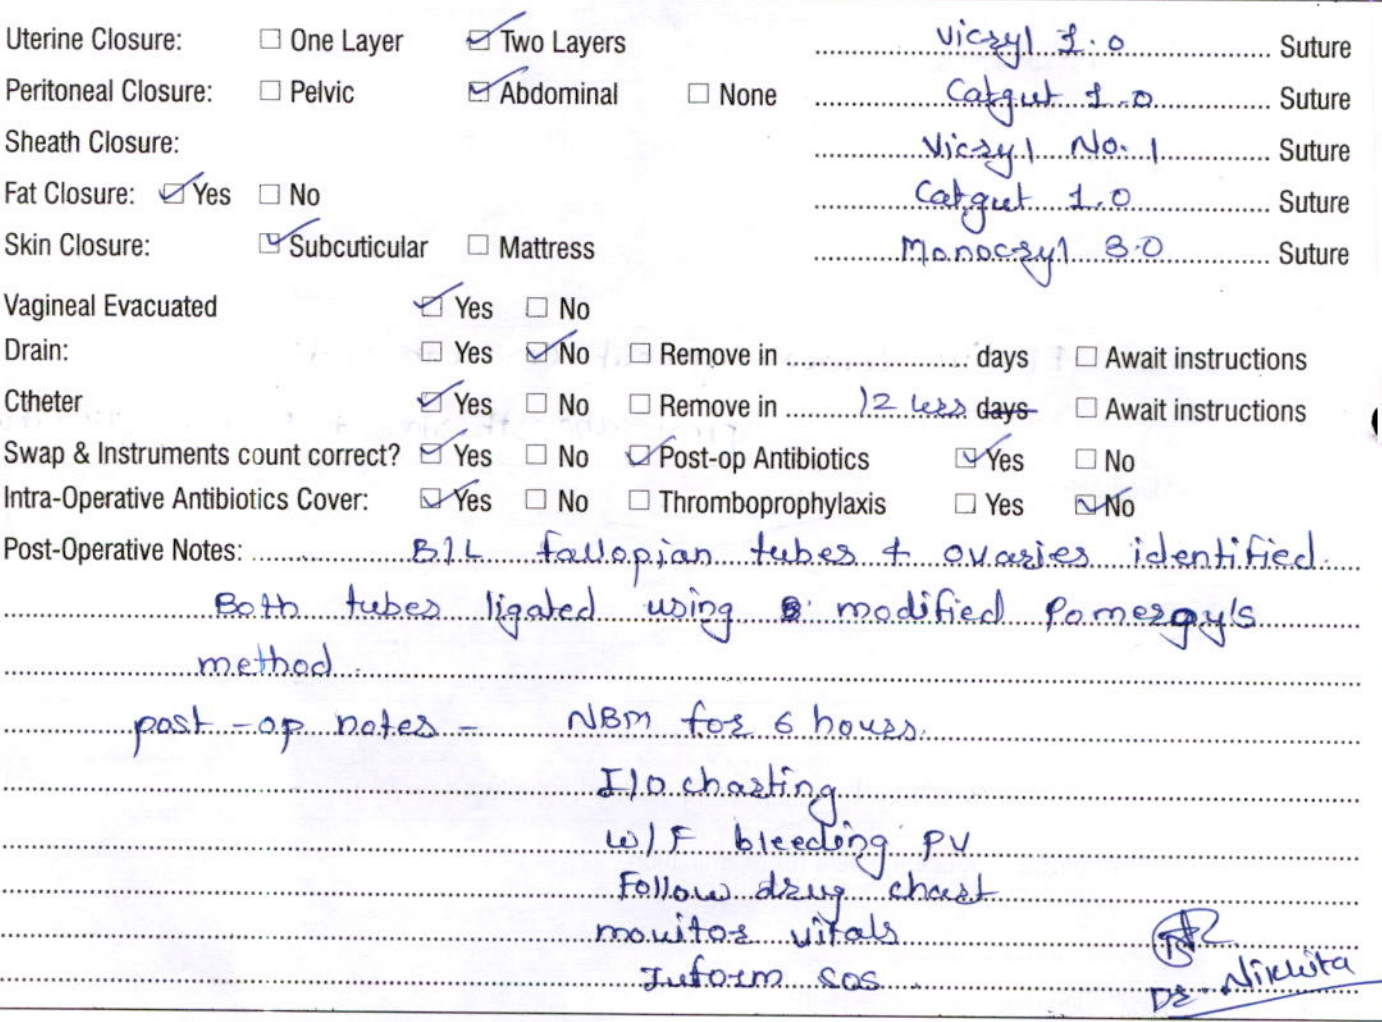 Uterine Closure: ☐ One Layer ☑ Two Layers Vicryl 1.0 Suture
Peritoneal Closure: ☐ Pelvic ☑ Abdominal ☐ None Catgut 1.0 Suture
Sheath Closure: Vicryl No. 1 Suture
Fat Closure: ☑ Yes ☐ No Catgut 1.0 Suture
Skin Closure: ☑ Subcuticular ☐ Mattress Monocryl 3.0 Suture
Vagineal Evacuated ☑ Yes ☐ No
Drain: ☐ Yes ☑ No ☐ Remove in ........ days ☐ Await instructions
Ctheter ☑ Yes ☐ No ☐ Remove in 12 days ☐ Await instructions
Swap & Instruments count correct? ☑ Yes ☐ No ☑ Post-op Antibiotics ☑ Yes ☐ No
Intra-Operative Antibiotics Cover: ☑ Yes ☐ No ☐ Thromboprophylaxis ☐ Yes ☑ No
Post-Operative Notes: B/L fallopian tubes + ovaries identified.
Both tubes ligated using modified Pomeroy's
method.
post-op notes - NBM for 6 hours.
I/O charting
W/F bleeding PV
Follow drug chart
monitor vitals
Inform SOS
Dr. Nikhita